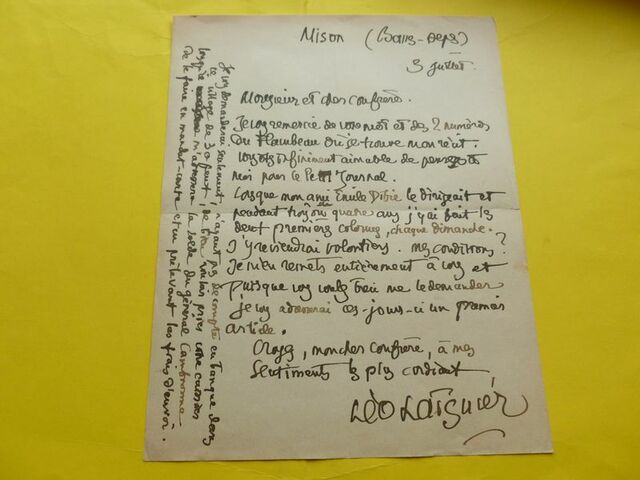 Mison (Bass-Alps)
3 juillet.
Monsieur et cher confrère.
Je vous remercie de votre mot et des 2 numéros
du Flambeau où se trouve mon récit.
Vous êtes infiniment aimable de penser à
moi pour le Petit Journal.
Lorsque mon ami Emile le dirigeait et
pendant trois ou quatre ans j'y ai fait les
deux premières colonnes, chaque dimanche.
J'y reviendrai volontiers. Mes conditions ?
Je m'en remets entièrement à vous et
puisque vous voulez bien me le demander
je vous adresserai ces jours-ci un premier
article.
Croyez, mon cher confrère, à mes
sentiments les plus cordiaux
Léo Larguier
Je vous demanderai seulement, n'ayant pas de compte en banque dans
le village de 30 feux, de bien vouloir prier votre caissier
lorsqu'il m'adressera la solde du général Cambronne
de le faire en mandat-carte et en prélevant les frais d'envoi.